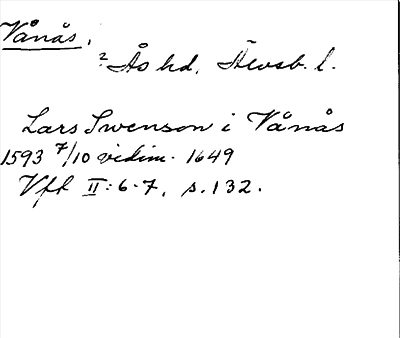 Vånås.
? Ås hd. Älvsb. l.
Lars Swenson i Vånås
1593 7/10 vidim. 1649
Vft II: 6-7, s. 132.